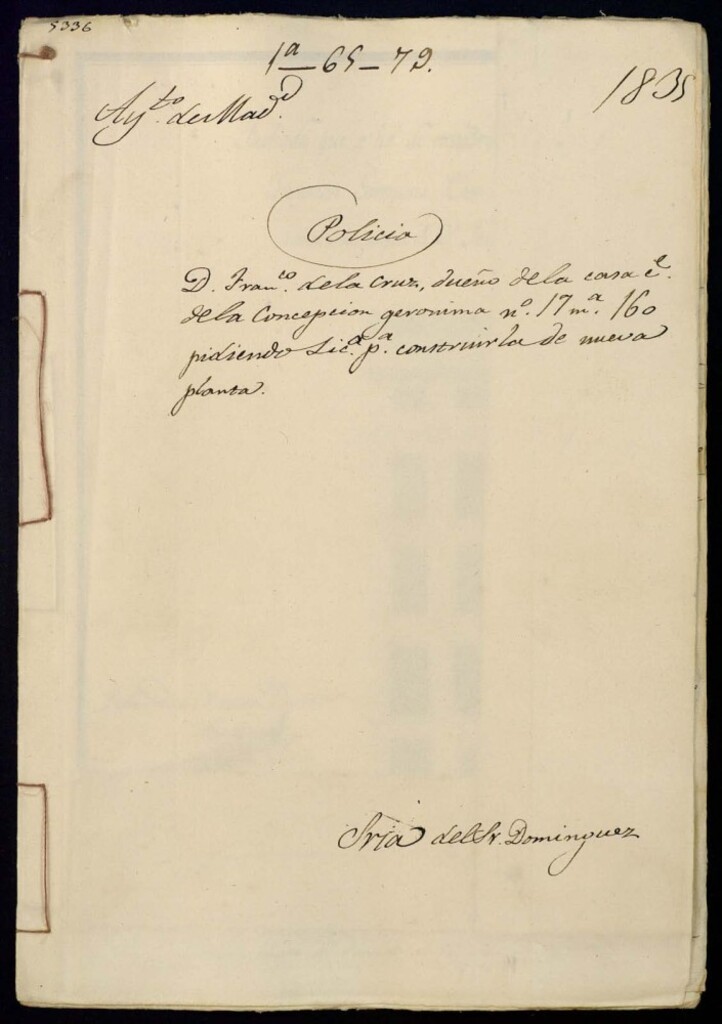 5336
1ª - 65 - 79.
1835
Ay.to de Mad.d
Policia
D. Fran.co de la Cruz, dueño de la casa c.e
de la Concepcion geronima n.º 17 m.ª 160
pidiendo Lic.ª p.ª construirla de nueva
planta.
Sria del Sr. Dominguez